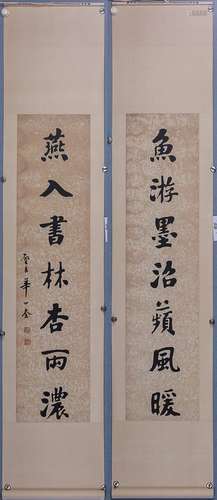 魚游墨沼蘋風暖
燕入書林杏雨濃
華世奎